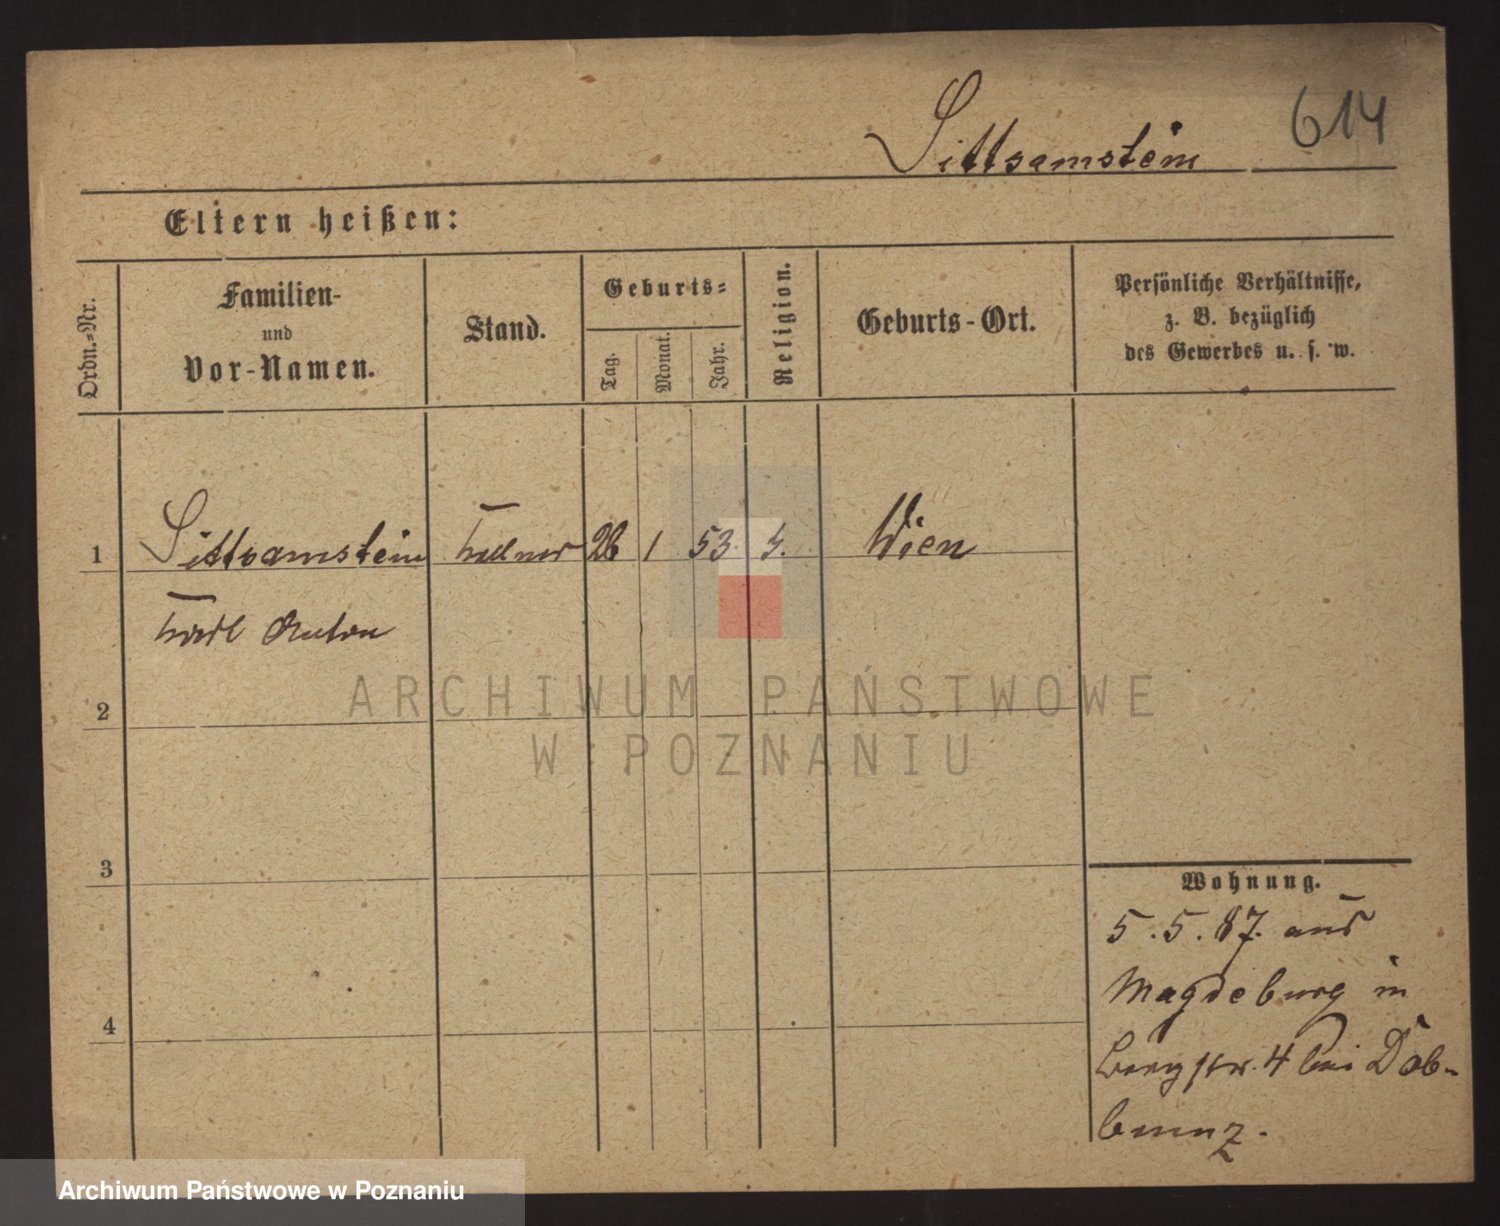 Sittsamstein 614
Eltern heißen:
Ordn.-Nr.
Familien-
und
Vor-Namen.
Stand.
Geburts-
Tag.
Monat.
Jahr.
Religion.
Geburts-Ort.
Persönliche Verhältnisse,
z. B. bezüglich
des Gewerbes u. s. w.
1 Sittsamstein Kellner 26 1 53. Wien
Karl Anton
2
3
4
Wohnung.
5.5.87. aus
Magdeburg in
Bergstr. 4 bei Dob-
ARCHIWUM PAŃSTWOWE
W POZNANIU
Archiwum Państwowe w Poznaniu